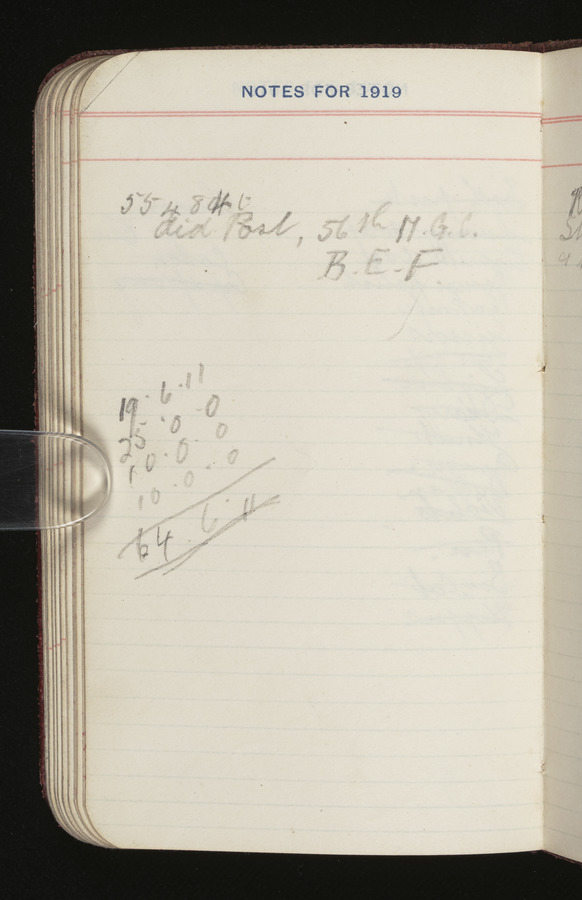 NOTES FOR 1919
5548
did Post, 56th M.G.C.
B.E.F
19 . 6 . 11
25 . 0 . 0
10 . 0 . 0
10 . 0 . 0
64 . 6 . 11